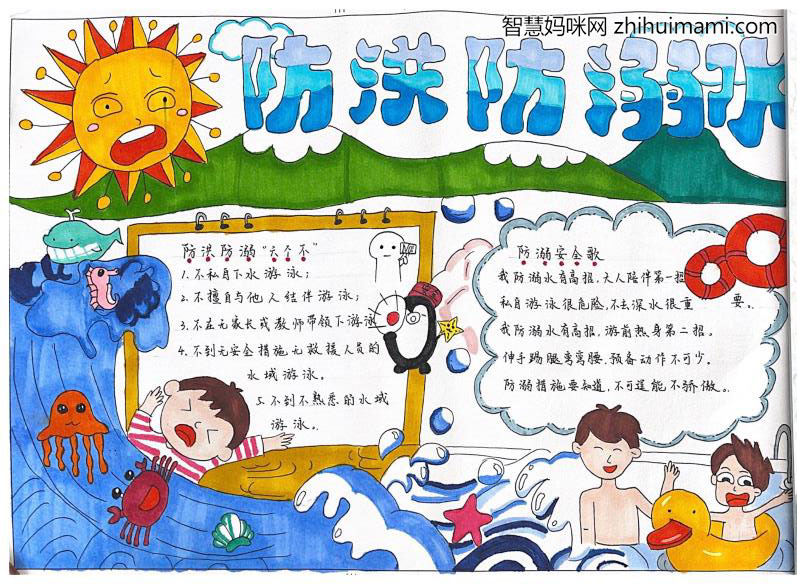 智慧妈咪网 zhihuimami.com
防洪防溺水
防洪防溺“六个不”
1.不私自下水游泳；
2.不擅自与他人结伴游泳；
3.不在无家长或教师带领下游泳
4.不到无安全措施无救援人员的
水域游泳。
5.不到不熟悉的水域
游泳。
防溺安全歌
我防溺水有高招，大人陪伴第一招
私自游泳很危险，不去深水很重要。
我防溺水有高招，游前热身第二招。
伸手踢腿弯弯腰，预备动作不可少。
防溺措施要知道，不可逞能不骄傲。